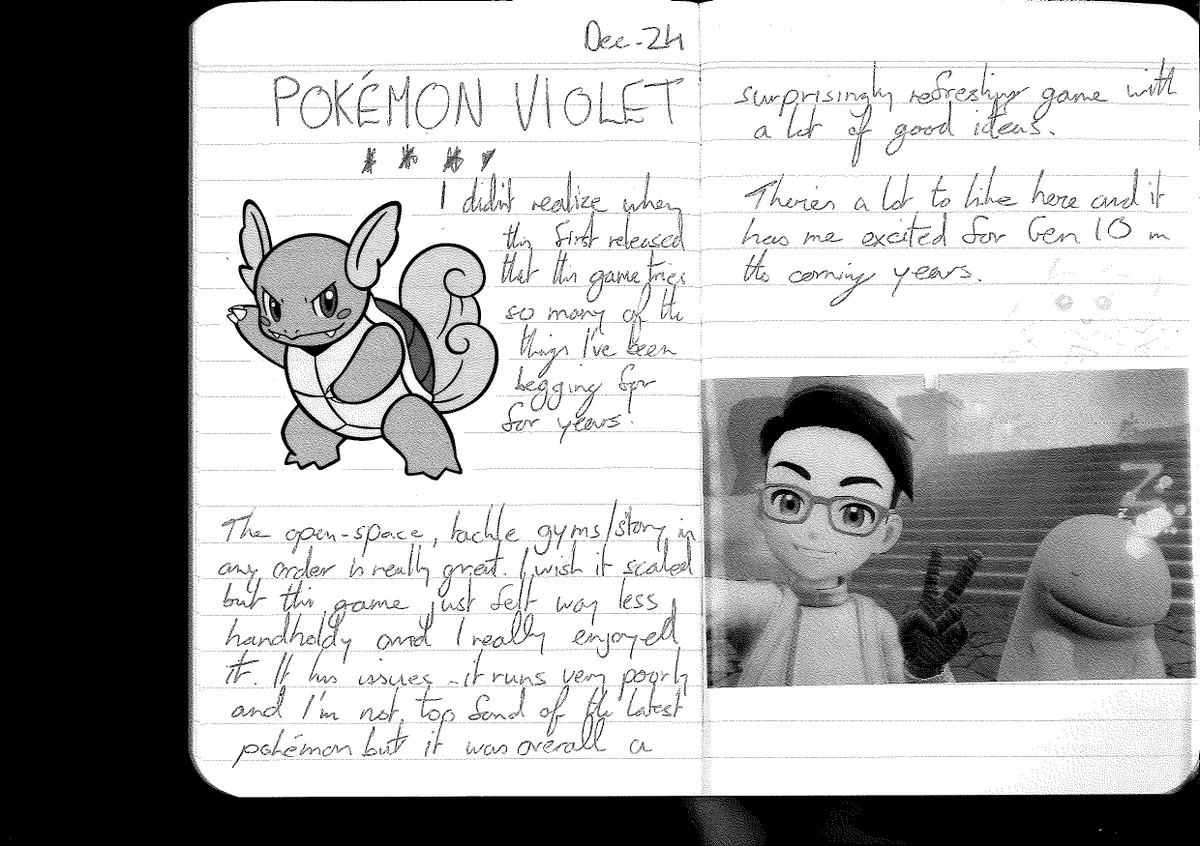 Dec-24
POKÉMON VIOLET
I didn't realize when
this first released
that this game tries
so many of the
things I've been
begging for
for years!
The open-space, tackle gyms/story in
any order is really great. I wish it scaled
but this game just felt way less
handholdy and I really enjoyed
it. It has issues - it runs very poorly
and I'm not top fond of the latest
pokémon but it was overall a
surprisingly refreshing game with
a lot of good ideas.
There's a lot to like here and it
has me excited for Gen 10 in
the coming years.
Z
z